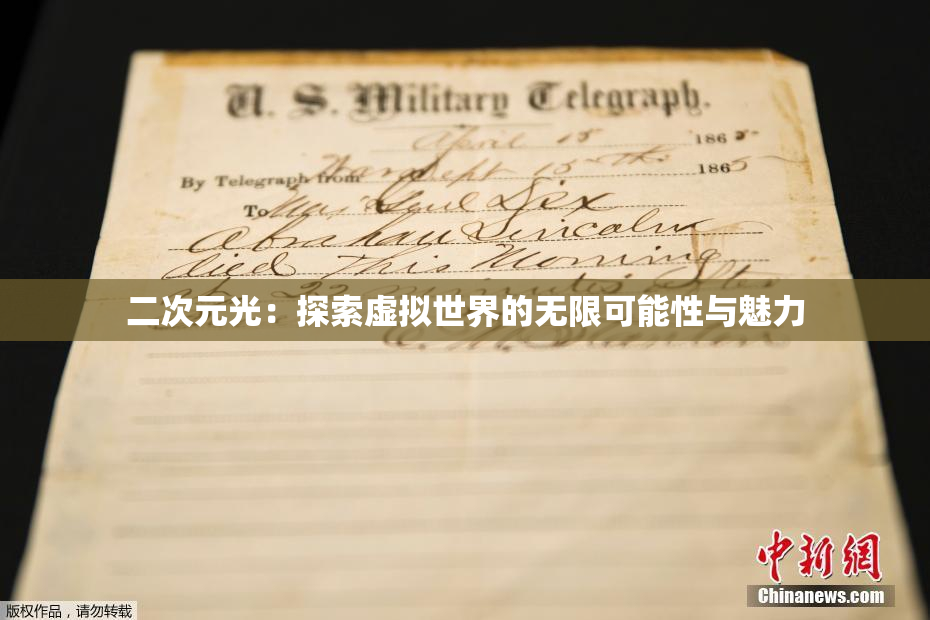 U. S. Military Telegraph.
April 15 1865
By Telegraph from War Dept 15th 1865
To Maj Genl Dix
Abraham Lincoln
died This Morning
at 22 minutes after
二次元光：探索虚拟世界的无限可能性与魅力
中新网
Chinanews.com
版权作品，请勿转载